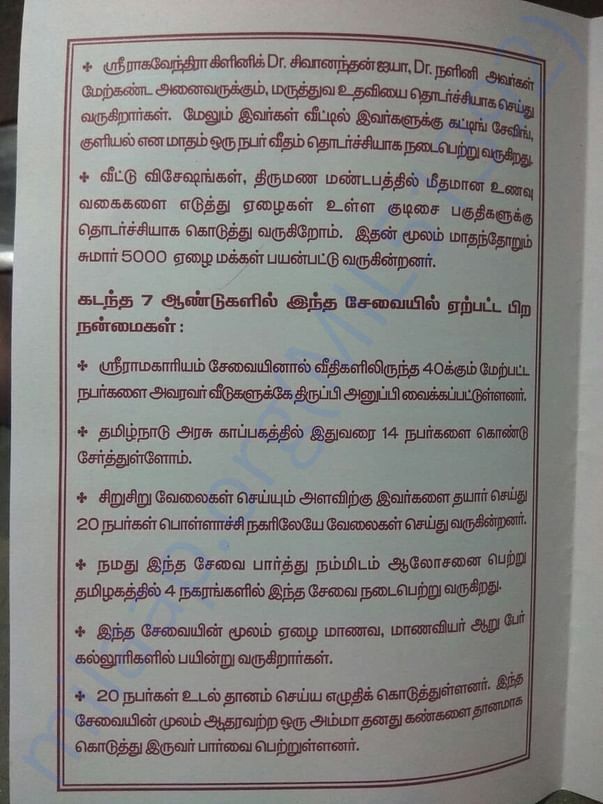 ✤ ஸ்ரீராகவேந்திரா கிளினிக் Dr. சிவானந்தன் ஐயா, Dr. நளினி அவர்கள்
மேற்கண்ட அனைவருக்கும், மருத்துவ உதவியை தொடர்ச்சியாக செய்து
வருகிறார்கள். மேலும் இவர்கள் வீட்டில் இவர்களுக்கு கட்டிங் சேவிங்,
குளியல் என மாதம் ஒரு நபர் வீதம் தொடர்ச்சியாக நடைபெற்று வருகிறது.
✤ வீட்டு விசேஷங்கள், திருமண மண்டபத்தில் மீதமான உணவு
வகைகளை எடுத்து ஏழைகள் உள்ள குடிசை பகுதிகளுக்கு
தொடர்ச்சியாக கொடுத்து வருகிறோம். இதன் மூலம் மாதந்தோறும்
சுமார் 5000 ஏழை மக்கள் பயன்பட்டு வருகின்றனர்.
கடந்த 7 ஆண்டுகளில் இந்த சேவையில் ஏற்பட்ட பிற
நன்மைகள் :
✤ ஸ்ரீராமகாரியம் சேவையினால் வீதிகளிலிருந்த 40க்கும் மேற்பட்ட
நபர்களை அவரவர் வீடுகளுக்கே திருப்பி அனுப்பி வைக்கப்பட்டுள்ளனர்.
✤ தமிழ்நாடு அரசு காப்பகத்தில் இதுவரை 14 நபர்களை கொண்டு
சேர்த்துள்ளோம்.
✤ சிறுசிறு வேலைகள் செய்யும் அளவிற்கு இவர்களை தயார் செய்து
20 நபர்கள் பொள்ளாச்சி நகரிலேயே வேலைகள் செய்து வருகின்றனர்.
✤ நமது இந்த சேவை பார்த்து நம்மிடம் ஆலோசனை பெற்று
தமிழகத்தில் 4 நகரங்களில் இந்த சேவை நடைபெற்று வருகிறது.
✤ இந்த சேவையின் மூலம் ஏழை மாணவ, மாணவியர் ஆறு பேர்
கல்லூரிகளில் பயின்று வருகிறார்கள்.
✤ 20 நபர்கள் உடல் தானம் செய்ய எழுதிக் கொடுத்துள்ளனர். இந்த
சேவையின் மூலம் ஆதரவற்ற ஒரு அம்மா தனது கண்களை தானமாக
கொடுத்து இருவர் பார்வை பெற்றுள்ளனர்.